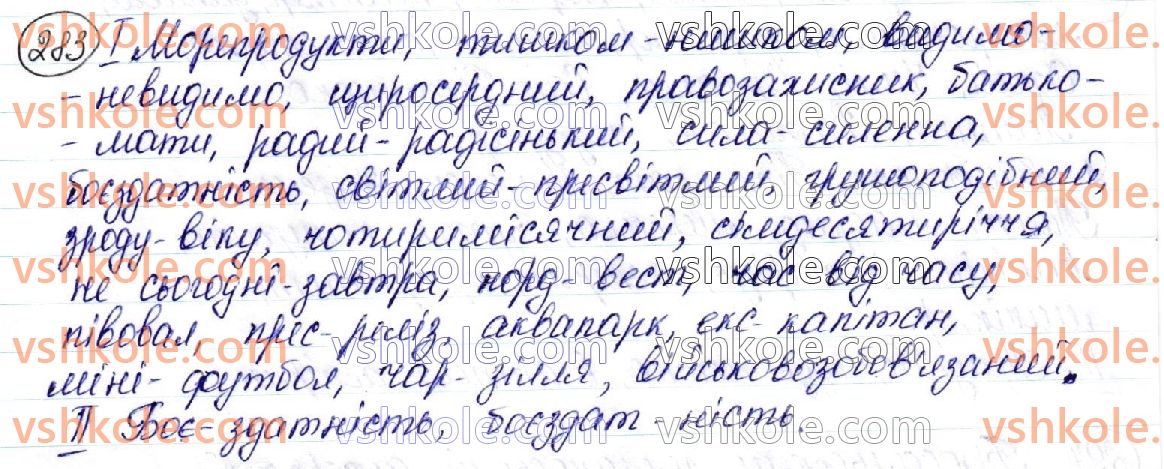 283 I Морепродукти, тишком-нишком, видимо-
-невидимо, щиросердний, правозахисник, батько-
-мати, радий-радісінький, сила-силенна,
боєздатність, світлий-пресвітлий, грушоподібний,
зроду-віку, чотиримісячний, сімдесятиріччя,
не сьогодні-завтра, норд-вест, час від часу,
півовал, прес-реліз, аквапарк, екс-капітан,
міні-футбол, чар-зілля, військовозобов'язаний.
II Боє-здатність, боєздат-ність.